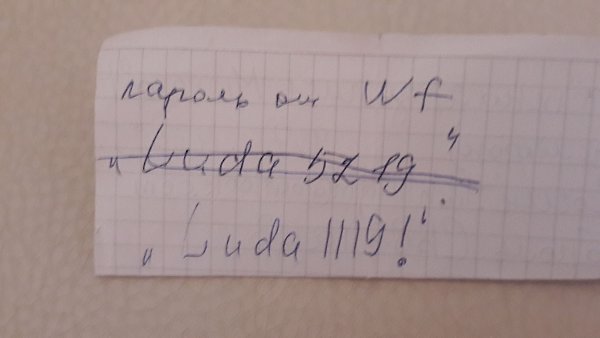 пароль от Wf
"Luda 5219"
"Luda1119!"